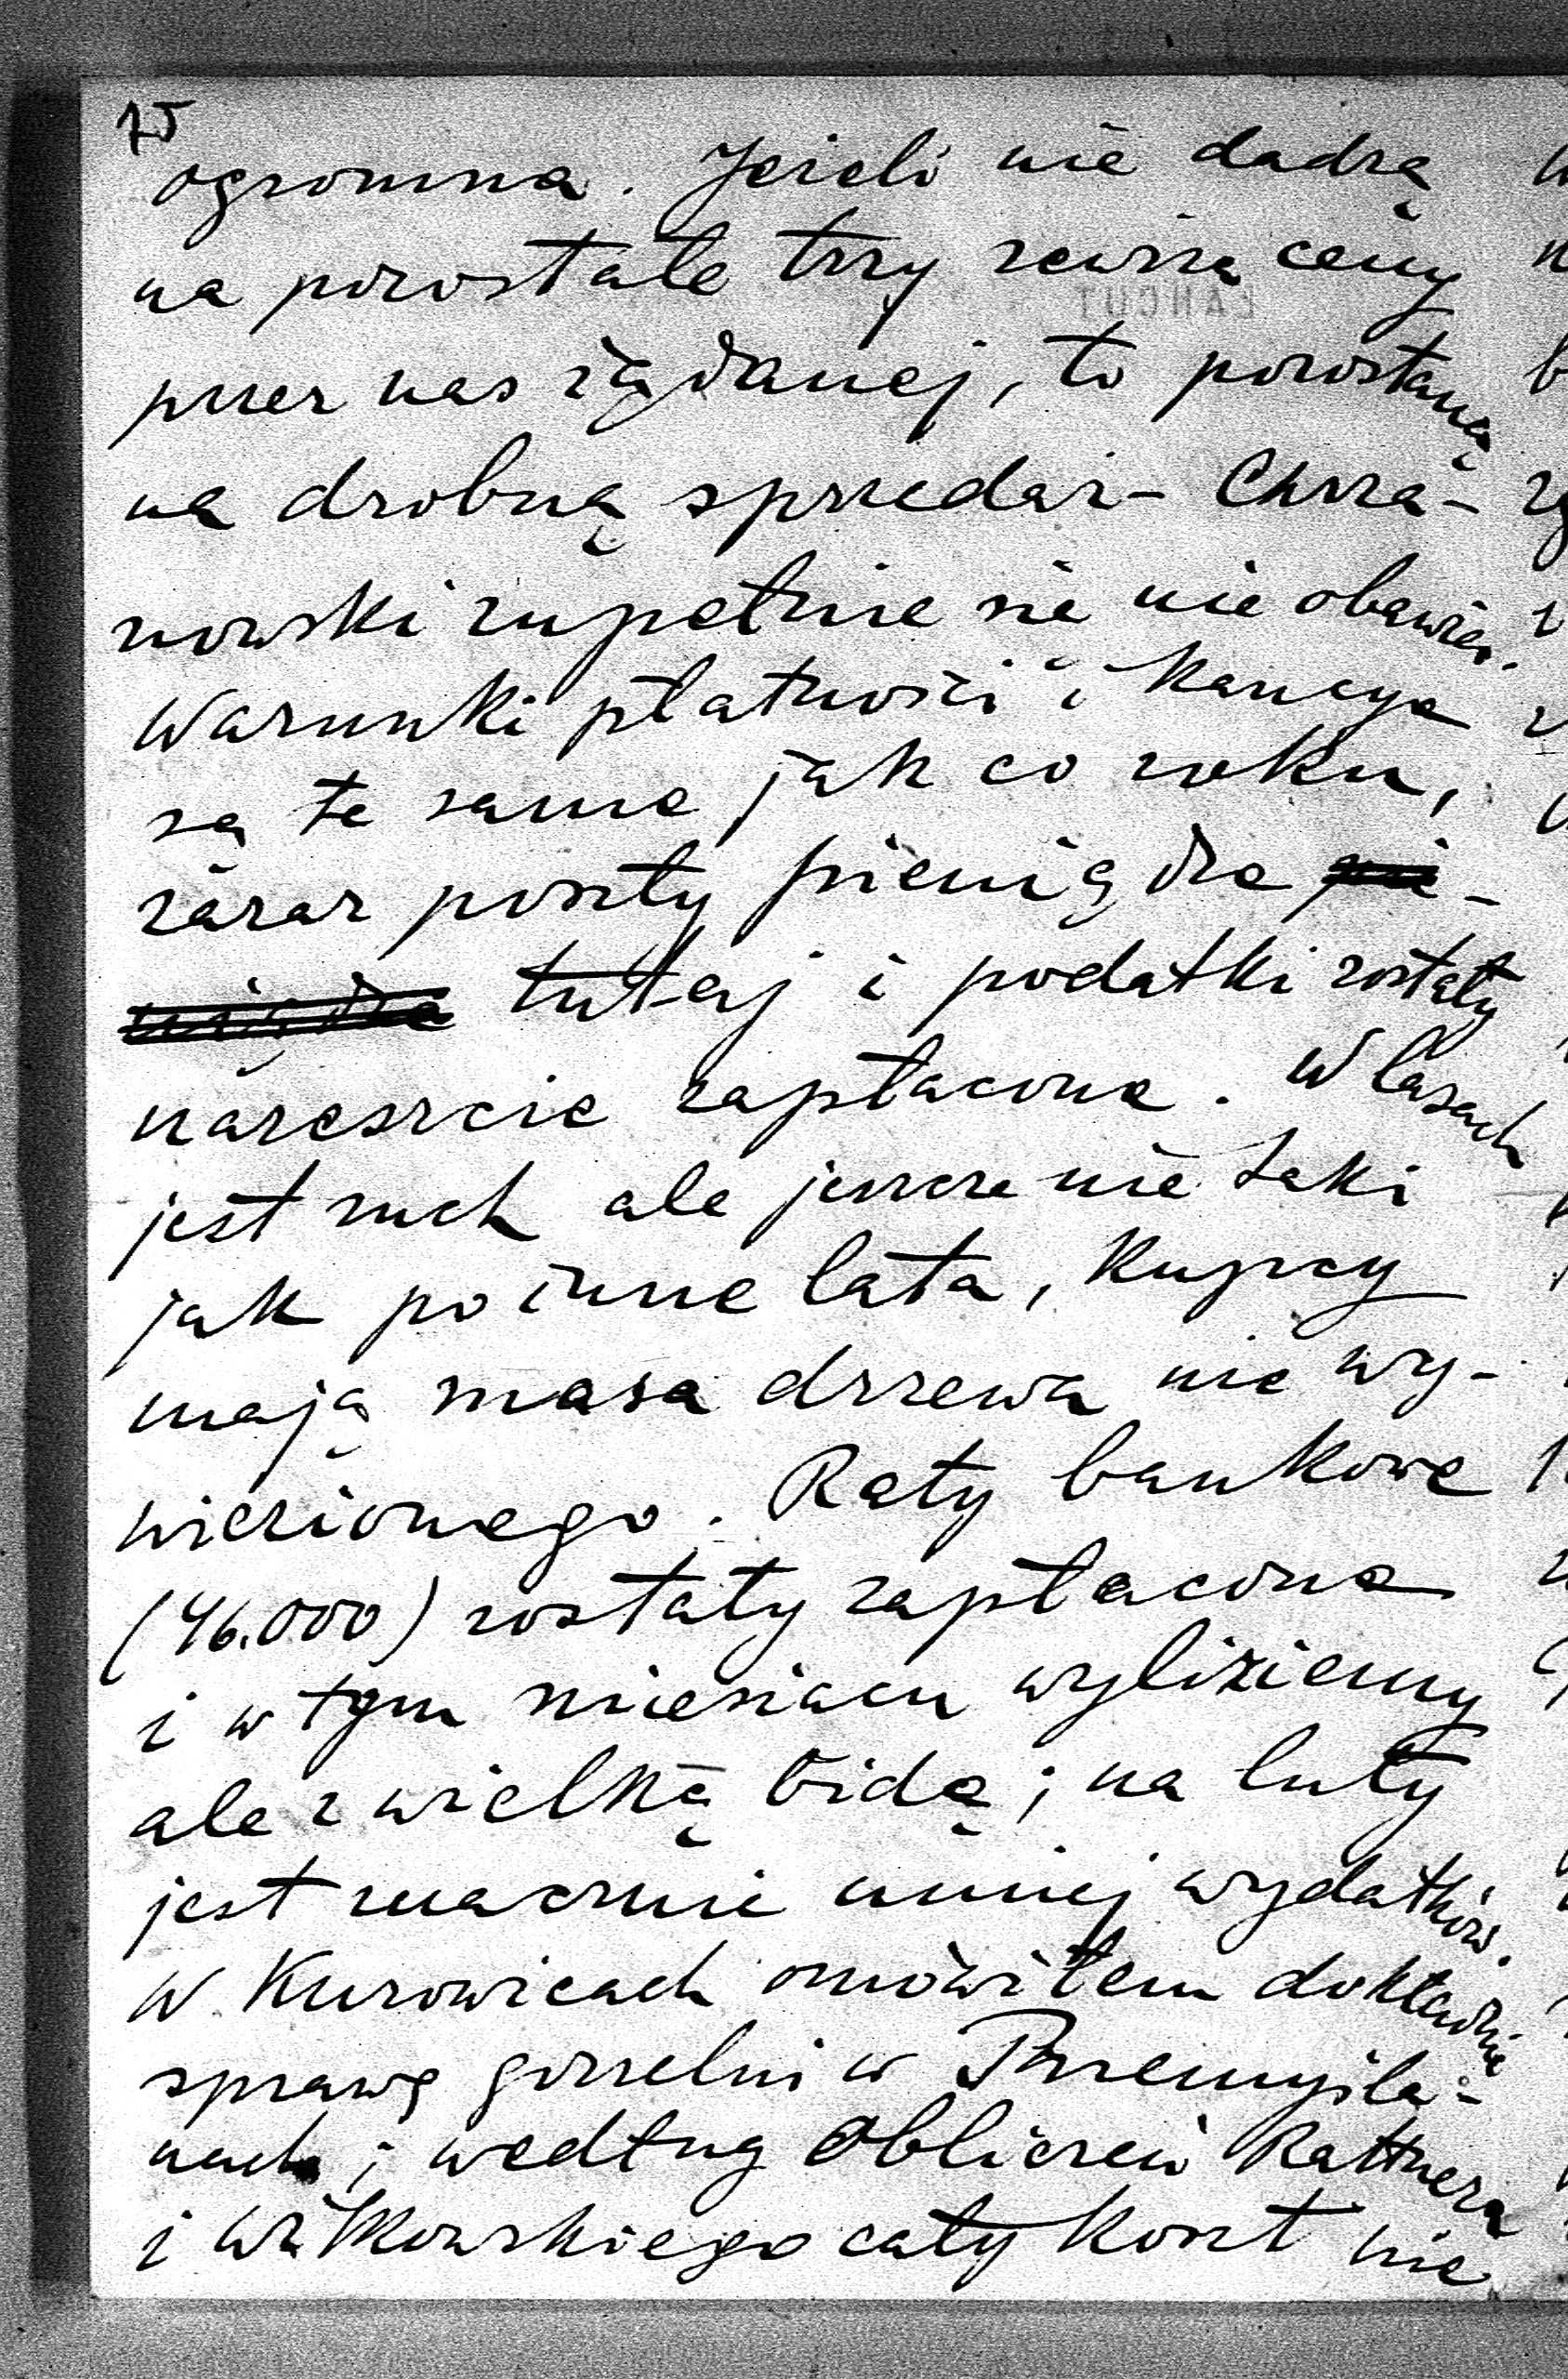 75
ogromna. Jeżeli nie dadzą
na pozostałe trzy rewiza ceny
przez nas żądanej, to pozostaną
na drobną sprzedaż - Chrza-
nowski zupełnie się nie obawia.
Warunki płatności i kaucye
są te same jak co roku,
zaraz poszły pieniądze pie-
niądze tutaj i podatki zostały
nareszcie zapłacone. W lasach
jest ruch ale jeszcze nie taki
jak po inne lata, kupcy
mają masa drzewa nie wy-
wiezionego. Raty bankowe
(46.000) zostały zapłacone
i w tym miesiacu wyliziemy
ale z wielką bidą; na luty
jest znacznie mniej wydatków.
W Kurowicach omówiłem dokładnie
sprawę gorzelni w Przemyśla-
nach; według obliczeń Rattnera
i Witkowskiego cały koszt nie
ŁAŃCUT